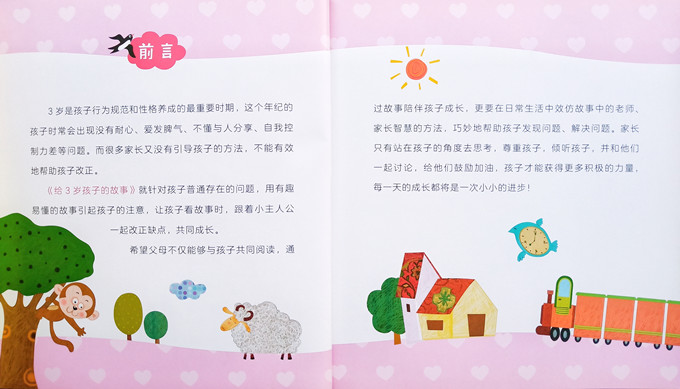 前言
3岁是孩子行为规范和性格养成的最重要时期，这个年纪的
孩子时常会出现没有耐心、爱发脾气、不懂与人分享、自我控
制力差等问题。而很多家长又没有引导孩子的方法，不能有效
地帮助孩子改正。
《给3岁孩子的故事》就针对孩子普通存在的问题，用有趣
易懂的故事引起孩子的注意，让孩子看故事时，跟着小主人公
一起改正缺点，共同成长。
希望父母不仅能够与孩子共同阅读，通
过故事陪伴孩子成长，更要在日常生活中效仿故事中的老师、
家长智慧的方法，巧妙地帮助孩子发现问题、解决问题。家长
只有站在孩子的角度去思考，尊重孩子，倾听孩子，并和他们
一起讨论，给他们鼓励加油，孩子才能获得更多积极的力量，
每一天的成长都将是一次小小的进步！